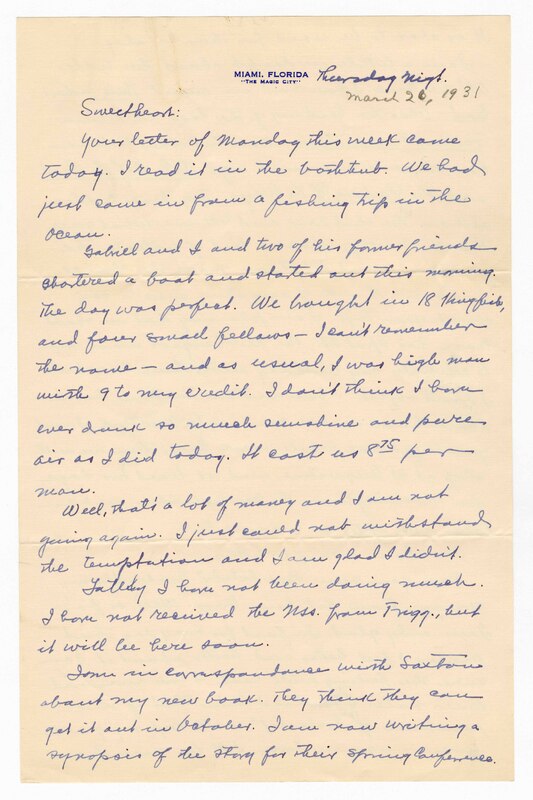 MIAMI, FLORIDA Thursday Night.
"THE MAGIC CITY"
March 26, 1931
Sweetheart:
Your letter of Monday this week came
today. I read it in the bathtub. We had
just come in from a fishing trip in the
ocean.
Gabriel and I and two of his former friends
chartered a boat and started out this morning.
The day was perfect. We brought in 18 kingfish,
and four small fellows – I can't remember
the name – and as usual, I was high man
with 9 to my credit. I don't think I have
ever drunk so much sunshine and pure
air as I did today. It cost us 8 75 per
man.
Well, that's a lot of money and I am not
going again. I just could not withstand
the temptation and I am glad I didn't.
I have not been doing much.
I have not received the Mss. from Trigg., but
it will be here soon.
I am in correspondance with Saxton
about my new book. They think they can
get it out in October. I am now writing a
synopsis of the story for their Spring Conference.